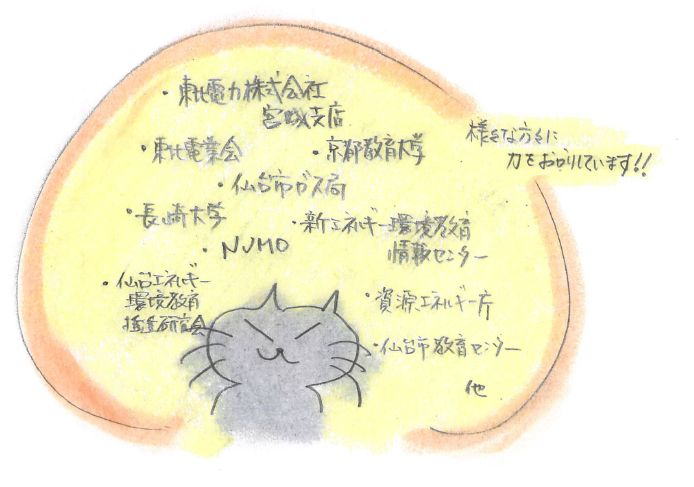 ・東北電力株式会社
宮城支店
・東北電業会
・京都教育大学
・仙台市ガス局
・長崎大学
・新エネルギー環境教育
情報センター
・NUMO
・仙台エネルギー
環境教育
推進研究会
・資源エネルギー庁
・仙台市教育センター
他
様々な方々に
力をお切りしています!!